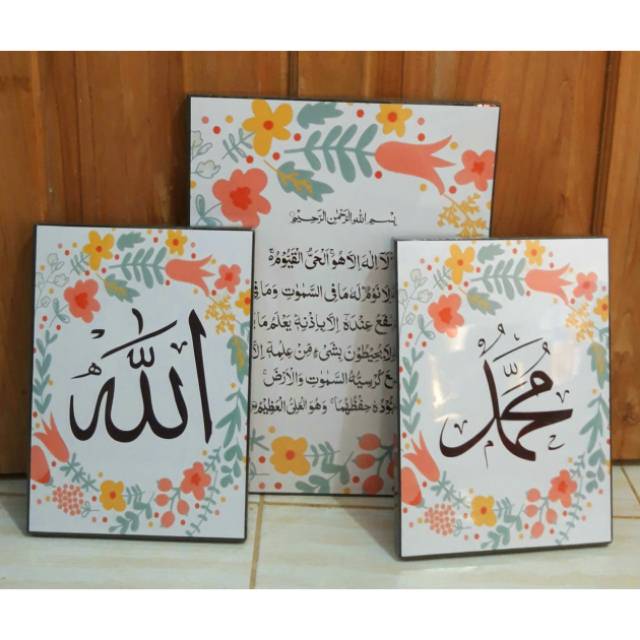 بِسْمِ اللهِ الرَّحْمٰنِ الرَّحِيْمِ
لَآ اِلٰهَ اِلَّا هُوَۚ اَلْحَيُّ الْقَيُّوْمُ
لَا نَوْمٌ لَهٗ مَا فِى السَّمٰوٰتِ وَمَا فِى
عِنْدَهٗٓ اِلَّا بِاِذْنِهٖ يَعْلَمُ مَا
لَا يُحِيْطُوْنَ بِشَيْءٍ مِّنْ عِلْمِهٖٓ اِلَّا
كُرْسِيُّهُ السَّمٰوٰتِ وَالْاَرْضَ
حِفْظُهُمَا وَهُوَ الْعَلِيُّ الْعَظِيْمُ
الله
مُحَمَّدٌ